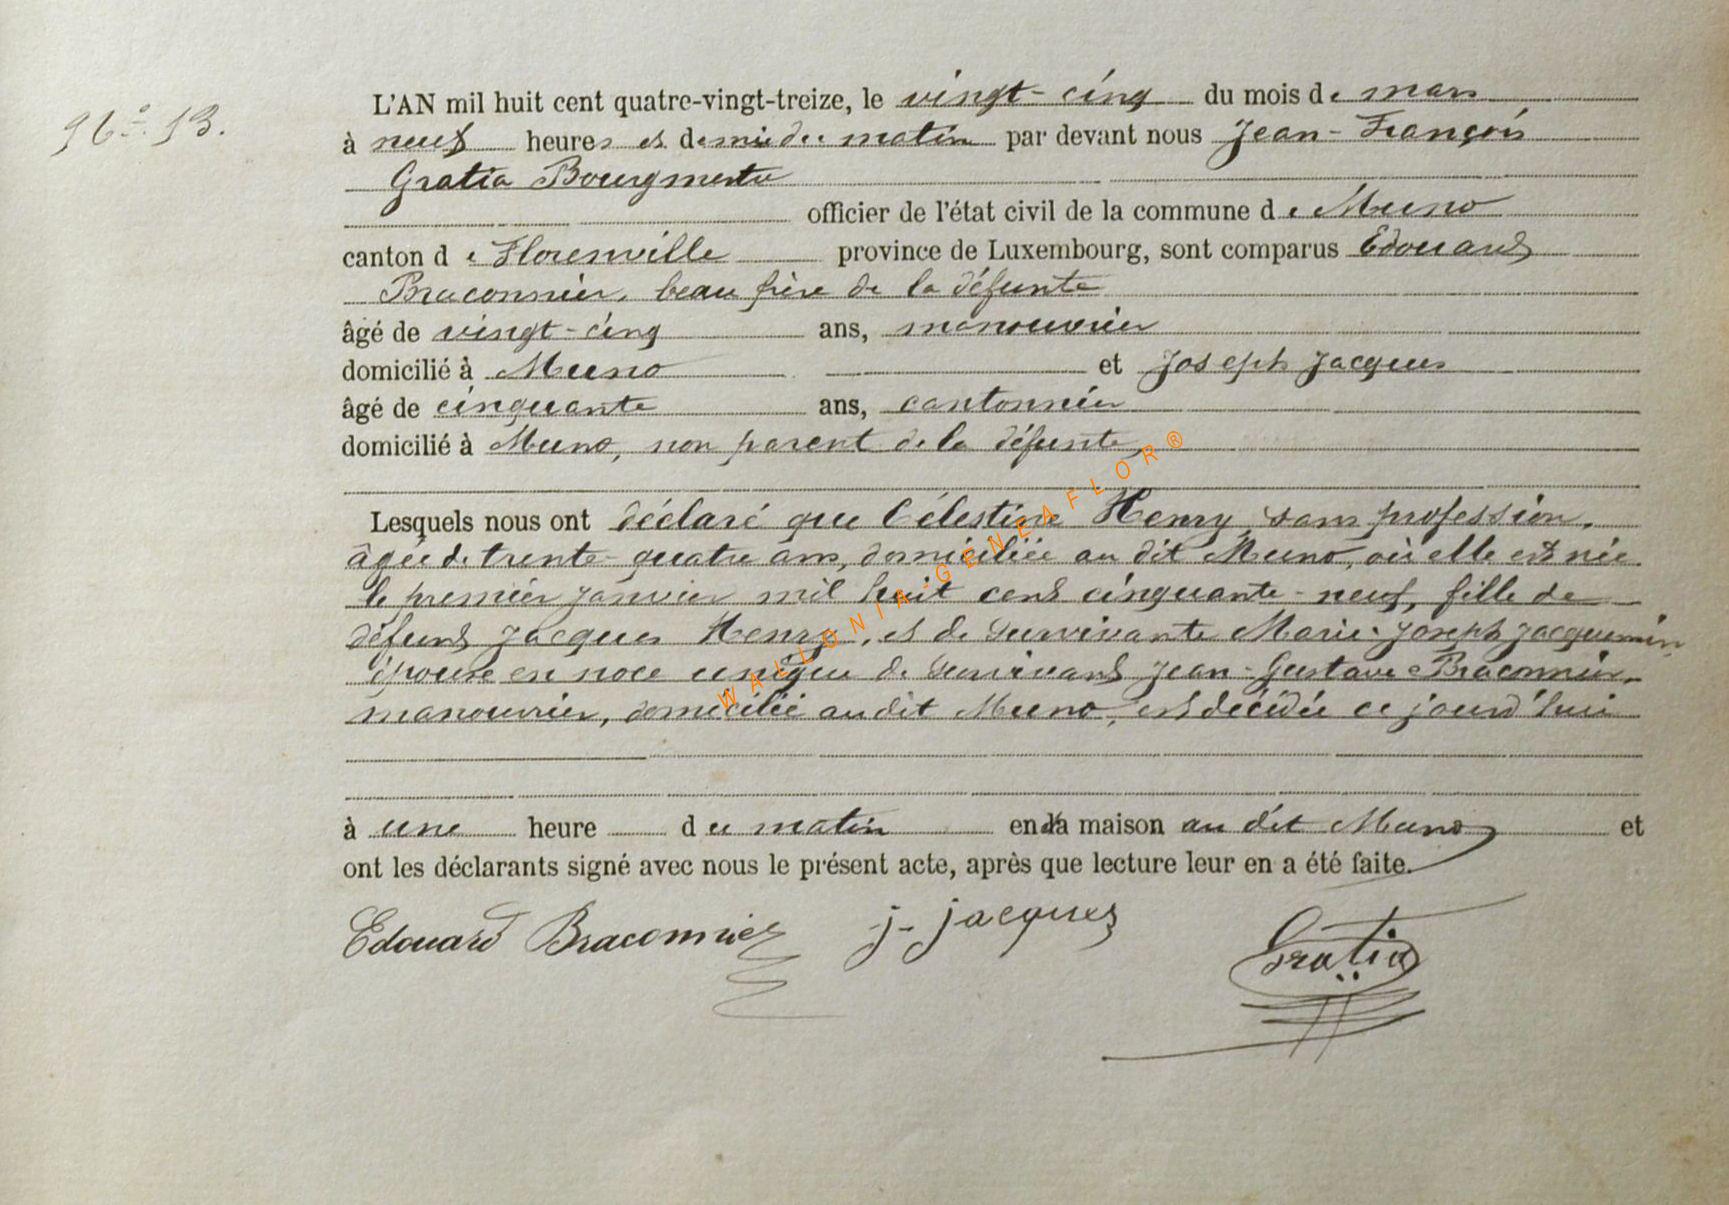 N° 13.
L'AN mil huit cent quatre-vingt-treize, le vingt-cinq du mois de mars
à neuf heures et demie du matin par devant nous Jean-François
Gratia Bourgmestre
officier de l'état civil de la commune de Muno
canton de Florenville province de Luxembourg, sont comparus Edouard
Braconnier, beau frère de la défunte
âgé de vingt-cinq ans, manouvrier
domicilié à Muno et Joseph Jacques
âgé de cinquante ans, cantonnier
domicilié à Muno, non parent de la défunte,
Lesquels nous ont déclaré que Célestine Henry, sans profession,
âgée de trente-quatre ans, domiciliée au dit Muno, où elle est née
le premier janvier mil huit cent cinquante-neuf, fille de
défunt Jacques Henry, et de survivante Marie-Joseph Jacquemin
épouse en noce unique de survivant Jean-Gustave Braconnier,
manouvrier, domicilié au dit Muno, est décédée ce jourd'hui
à une heure du matin en sa maison au dit Muno et
ont les déclarants signé avec nous le présent acte, après que lecture leur en a été faite.
Edouard Braconnier J. Jacques Gratia
WALLONIA-GENEAFLOR®